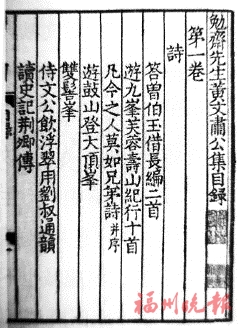 勉齋先生黃文肅公集目錄
第一卷
詩
答曾伯玉借長編二首
遊九峯芙蓉壽山紀行十首
凡今之人莫如兄弟詩并序
遊鼓山登大頂峯
雙髻峯
侍文公飲浮翠用劉叔通韻
讀史記荆卿傳
福州晚报